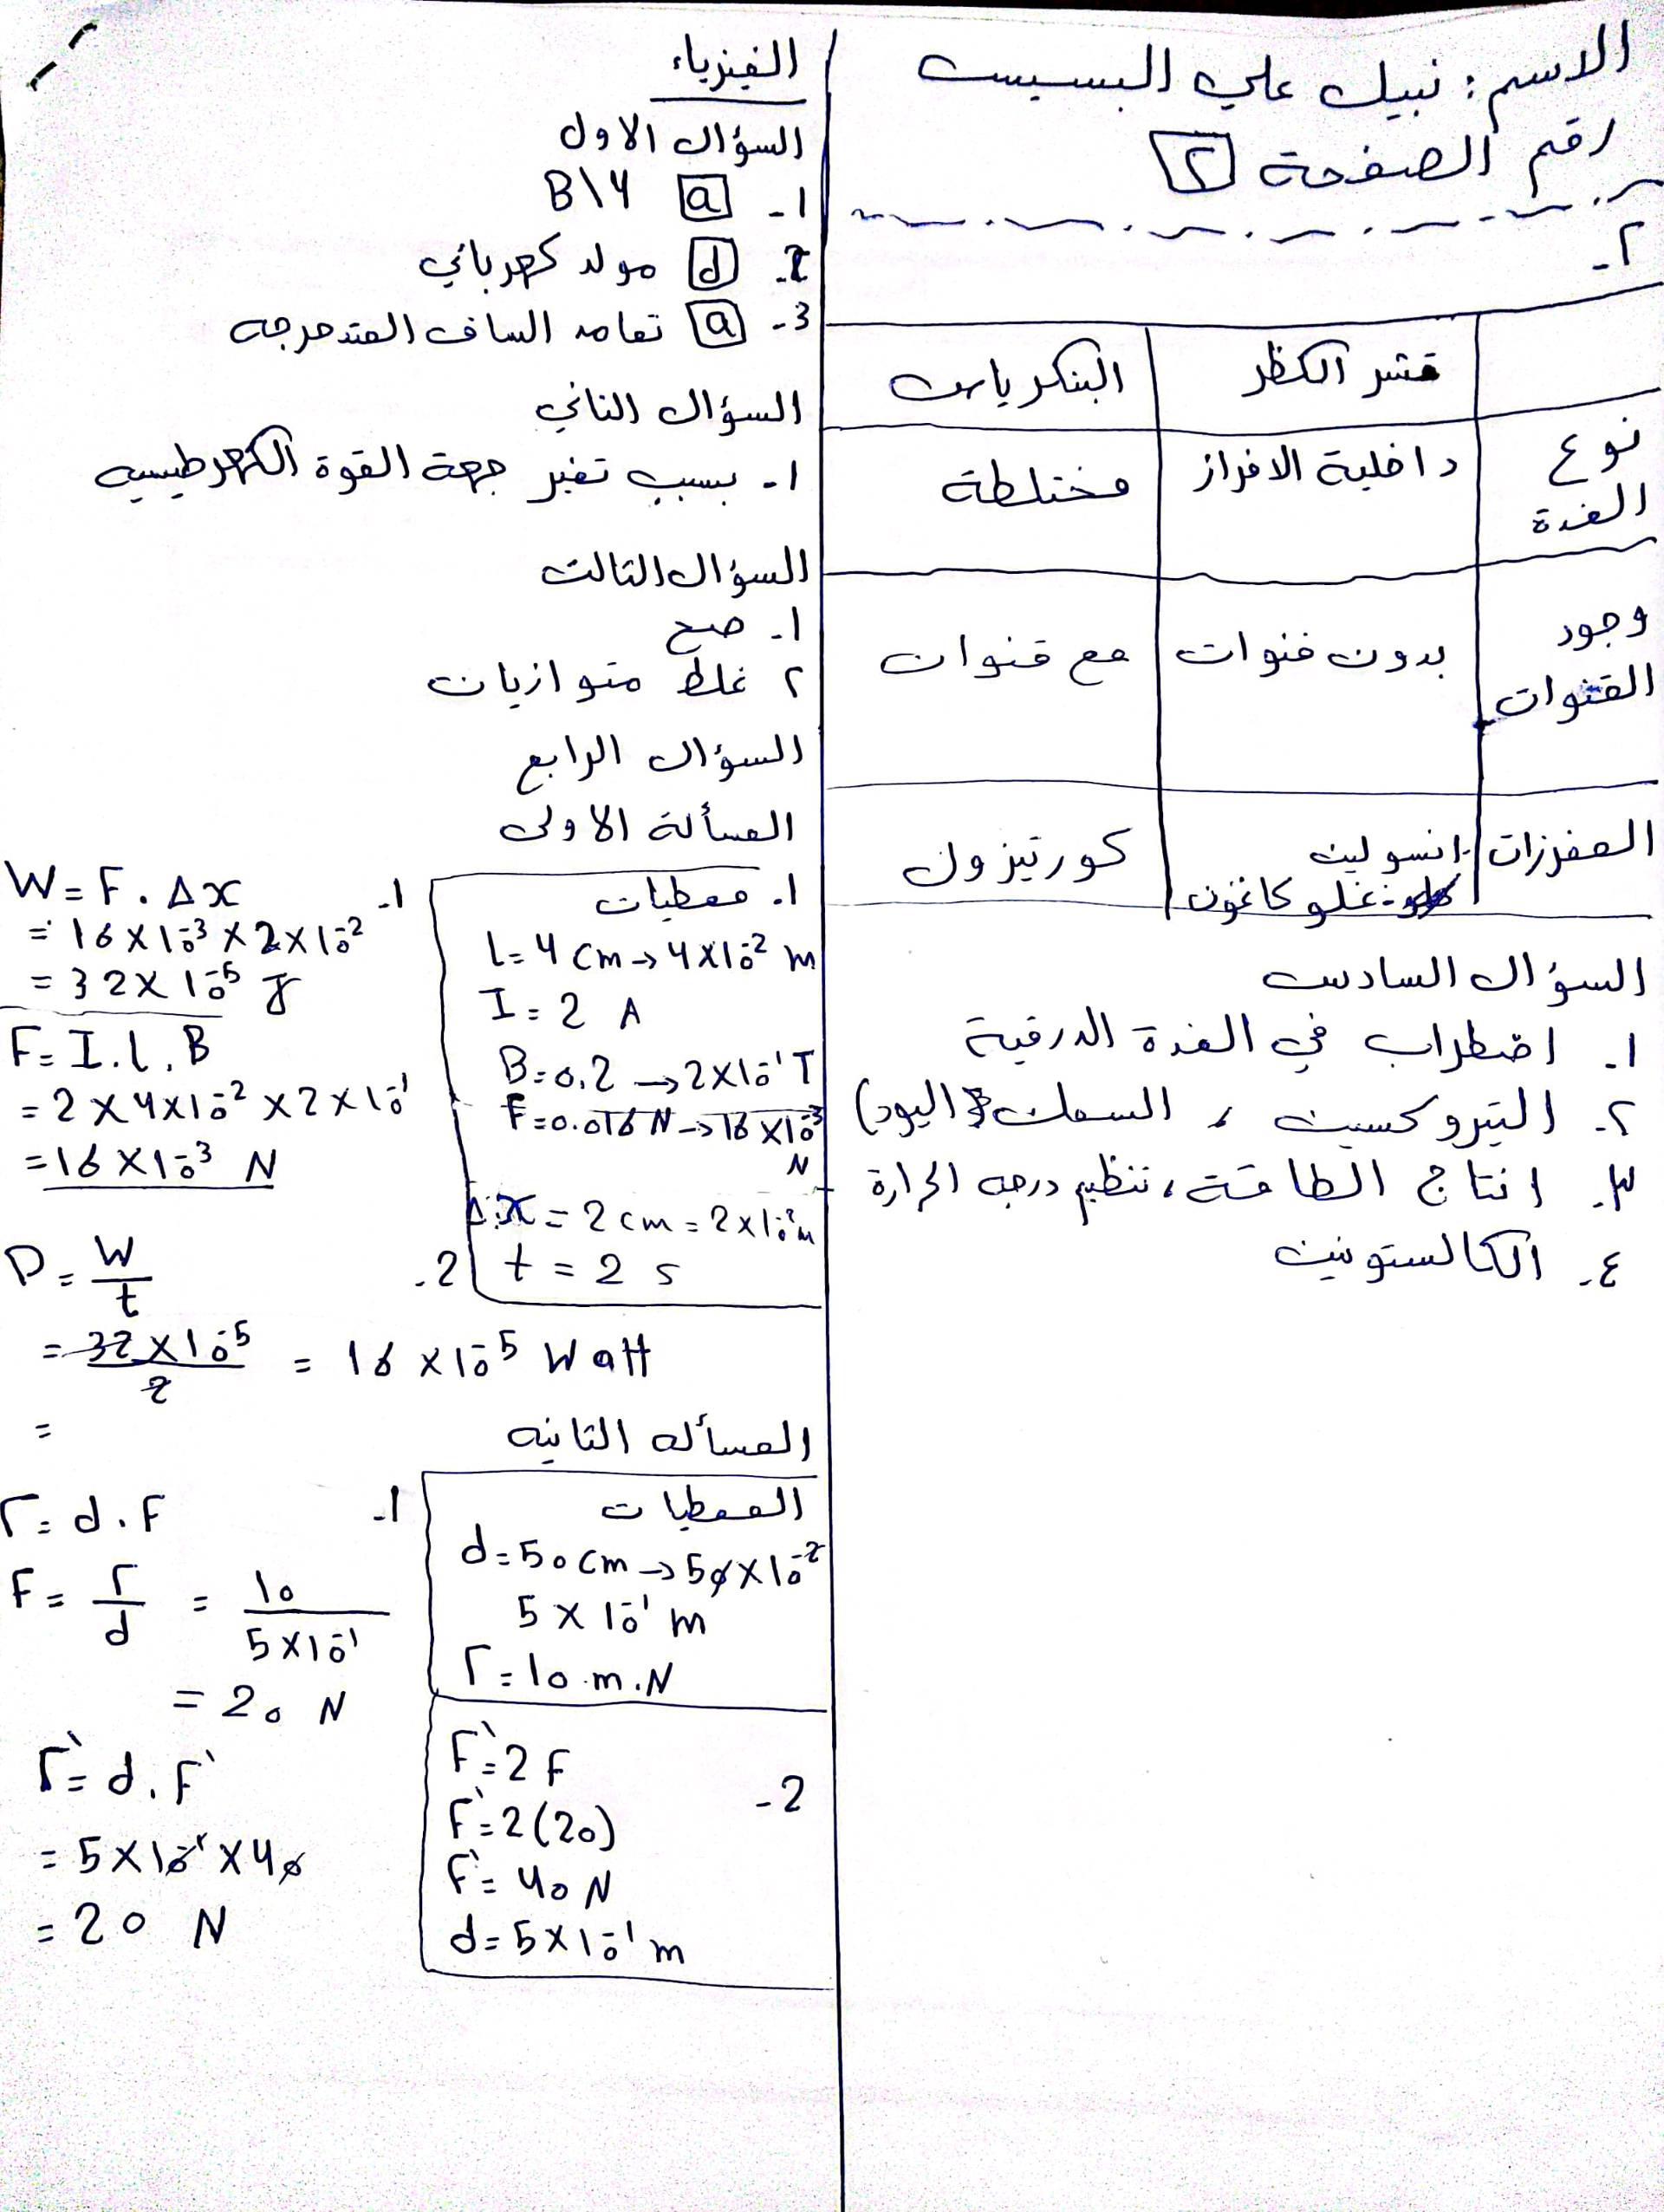 الاسم: نبيل علي البسيس
رقم الصفحة ٢
٢-
قشر الكظر | البنكرياس
نوع الغدة | داخلية الافراز | مختلطة
وجود القنوات | بدون قنوات | مع قنوات
المفرزات | - انسولين - غلوكاغون | كورتيزون
السؤال السادس
١- اضطراب في الغدة الدرقية
٢- التيروكسين ، السمك (اليود)
٣- انتاج الطاقة ، تنظيم درجه الحرارة
٤- الكالستونين
الفيزياء
السؤال الاول
1- a B\4
2- d مولد كهربائي
3- a تعامد الساق المتدحرجه
السؤال الثاني
١- بسبب تغير جهة القوة الكهرطيسيه
السؤال الثالث
١- صح
٢ غلط متوازيات
السؤال الرابع
المسألة الاولى
١- معطيات
l = 4 cm → 4×10⁻² m
I = 2 A
B = 0.2 → 2×10⁻¹ T
F = 0.016 N → 16×10⁻³ N
Δx = 2 cm = 2×10⁻² m
t = 2 s
1- W = F . Δx
= 16×10⁻³ × 2×10⁻²
= 32×10⁻⁵ J
F = I . l . B
= 2 × 4×10⁻² × 2×10⁻¹
= 16×10⁻³ N
2- P = W/t
= 32×10⁻⁵/2 = 16×10⁻⁵ Watt
=
المسأله الثانيه
المعطيات
d = 50 cm → 50×10⁻²
5×10⁻¹ m
Γ = 10 m.N
1- Γ = d . F
F = Γ/d = 10/5×10⁻¹
= 20 N
2-
F` = 2 F
F` = 2(20)
F` = 40 N
d = 5×10⁻¹ m
Γ` = d . F`
= 5×10⁻¹ × 40
= 20 N